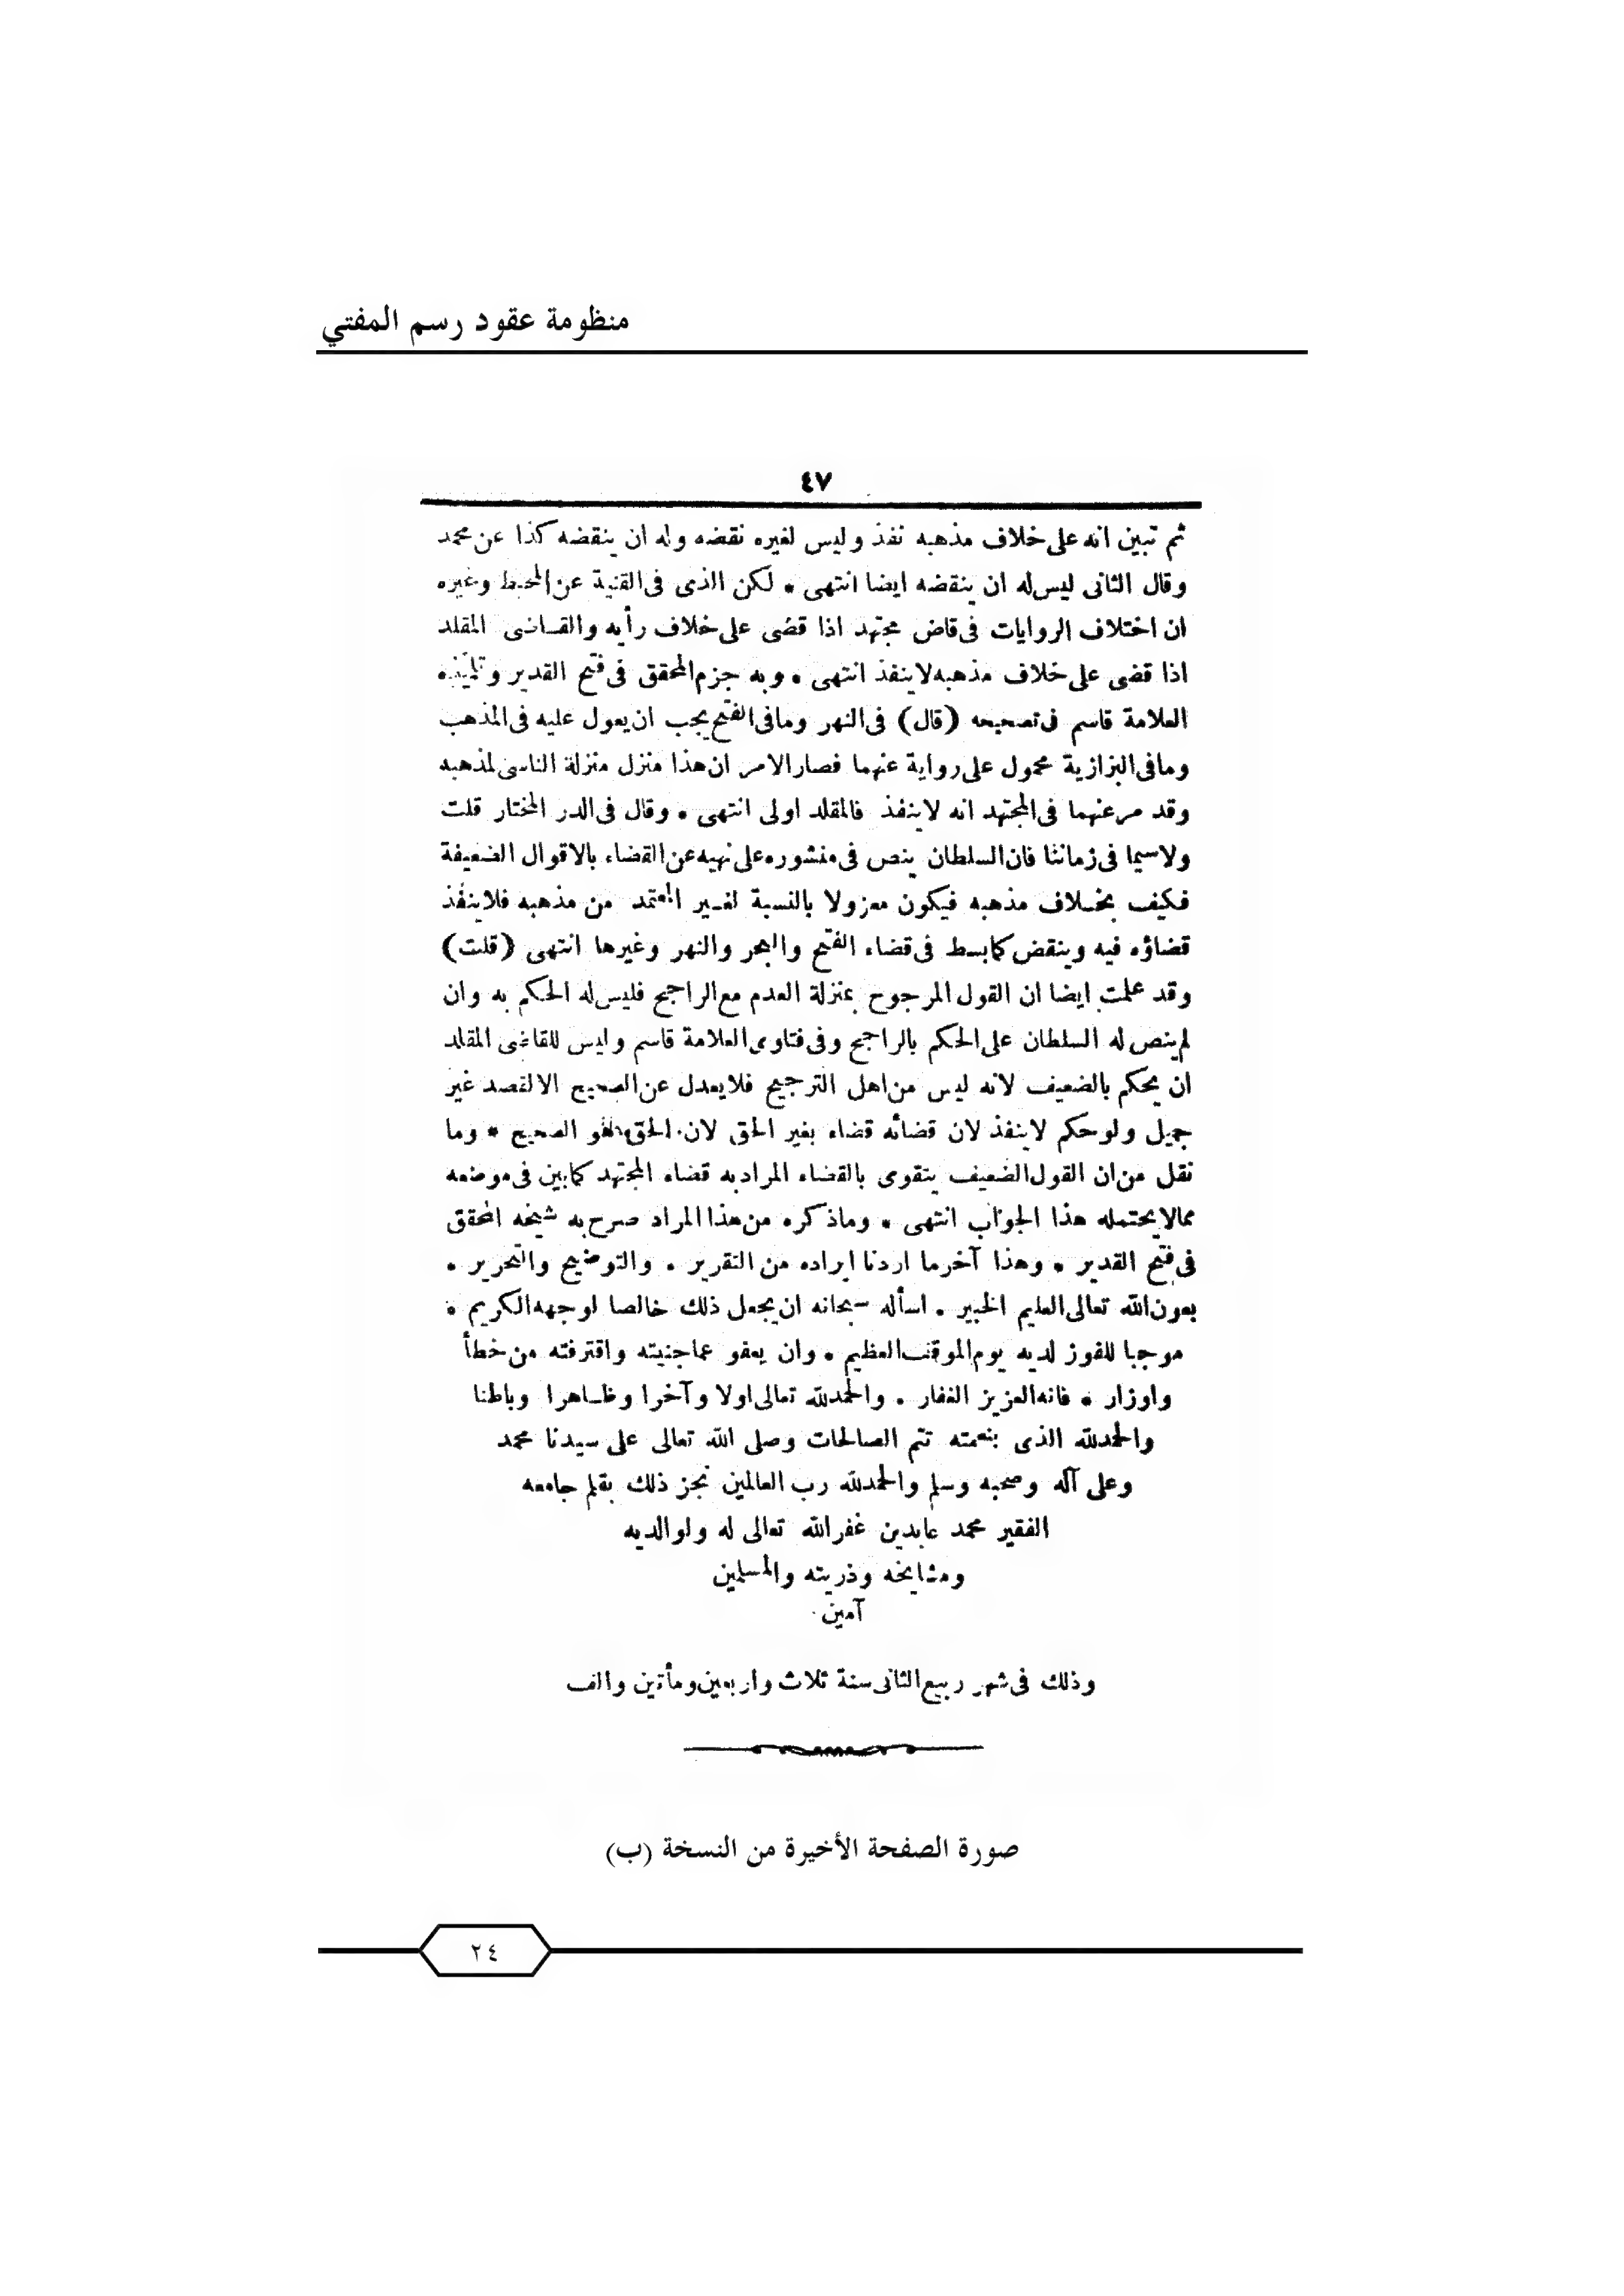 منظومة عقود رسم المفتي
٤٧
ثم تبين انه على خلاف مذهبه نفذ وليس لغيره نقضه وله ان ينقضه كذا عن محمد
وقال الثانى ليس له ان ينقضه ايضا انتهى * لكن الذى فى القنية عن المحيط وغيره
ان اختلاف الروايات فى قاض مجتهد اذا قضى على خلاف رأيه والقاضى المقلد
اذا قضى على خلاف مذهبه لا ينفذ انتهى * وبه جزم المحقق فى فتح القدير وتلميذه
العلامة قاسم فى تصحيحه (قال) فى النهر وما فى الفتح يجب ان يعول عليه فى المذهب
وما فى البزازية محمول على رواية عنهما فصار الامر ان هذا منزل منزلة الناسى لمذهبه
وقد مر عنهما فى المجتهد انه لا ينفذ فالمقلد اولى انتهى * وقال فى الدر المختار قلت
ولا سيما فى زماننا فان السلطان ينص فى منشوره على نهيه عن القضاء بالاقوال الضعيفة
فكيف بخلاف مذهبه فيكون معزولا بالنسبة لغير المعتمد من مذهبه فلا ينفذ
قضاؤه فيه وينقض كما بسط فى قضاء الفتح والبحر والنهر وغيرها انتهى (قلت)
وقد علمت ايضا ان القول المرجوح بمنزلة العدم مع الراجح فليس له الحكم به وان
لم ينص له السلطان على الحكم بالراجح وفى فتاوى العلامة قاسم وليس للقاضى المقلد
ان يحكم بالضعيف لانه ليس من اهل الترجيح فلا يعدل عن الصحيح الا لقصد غير
جميل ولو حكم لا ينفذ لان قضائه قضاء بغير الحق لان الحق هو الصحيح * وما
نقل من ان القول الضعيف يتقوى بالقضاء المراد به قضاء المجتهد كما بين فى موضعه
مما لا يحتمله هذا الجواب انتهى * وما ذكره من هذا المراد صرح به شيخه المحقق
فى فتح القدير * وهذا آخر ما اردنا ايراده من التقرير * والتوضيح والتحرير *
بعون الله تعالى العليم الخبير * اسأله سبحانه ان يجعل ذلك خالصا لوجهه الكريم *
موجبا للفوز لديه يوم الموقف العظيم * وان يعفو عما جنيته واقترفته من خطأ
واوزار * فانه العزيز الغفار * والحمد لله تعالى اولا وآخرا وظاهرا وباطنا
والحمد لله الذى بنعمته تتم الصالحات وصلى الله تعالى على سيدنا محمد
وعلى آله وصحبه وسلم والحمد لله رب العالمين نجز ذلك بقلم جامعه
الفقير محمد عابدين غفر الله تعالى له ولوالديه
ومشايخه وذريته والمسلمين
آمين
وذلك فى شهر ربيع الثانى سنة ثلاث واربعين ومأتين والف
صورة الصفحة الأخيرة من النسخة (ب)
٢٤